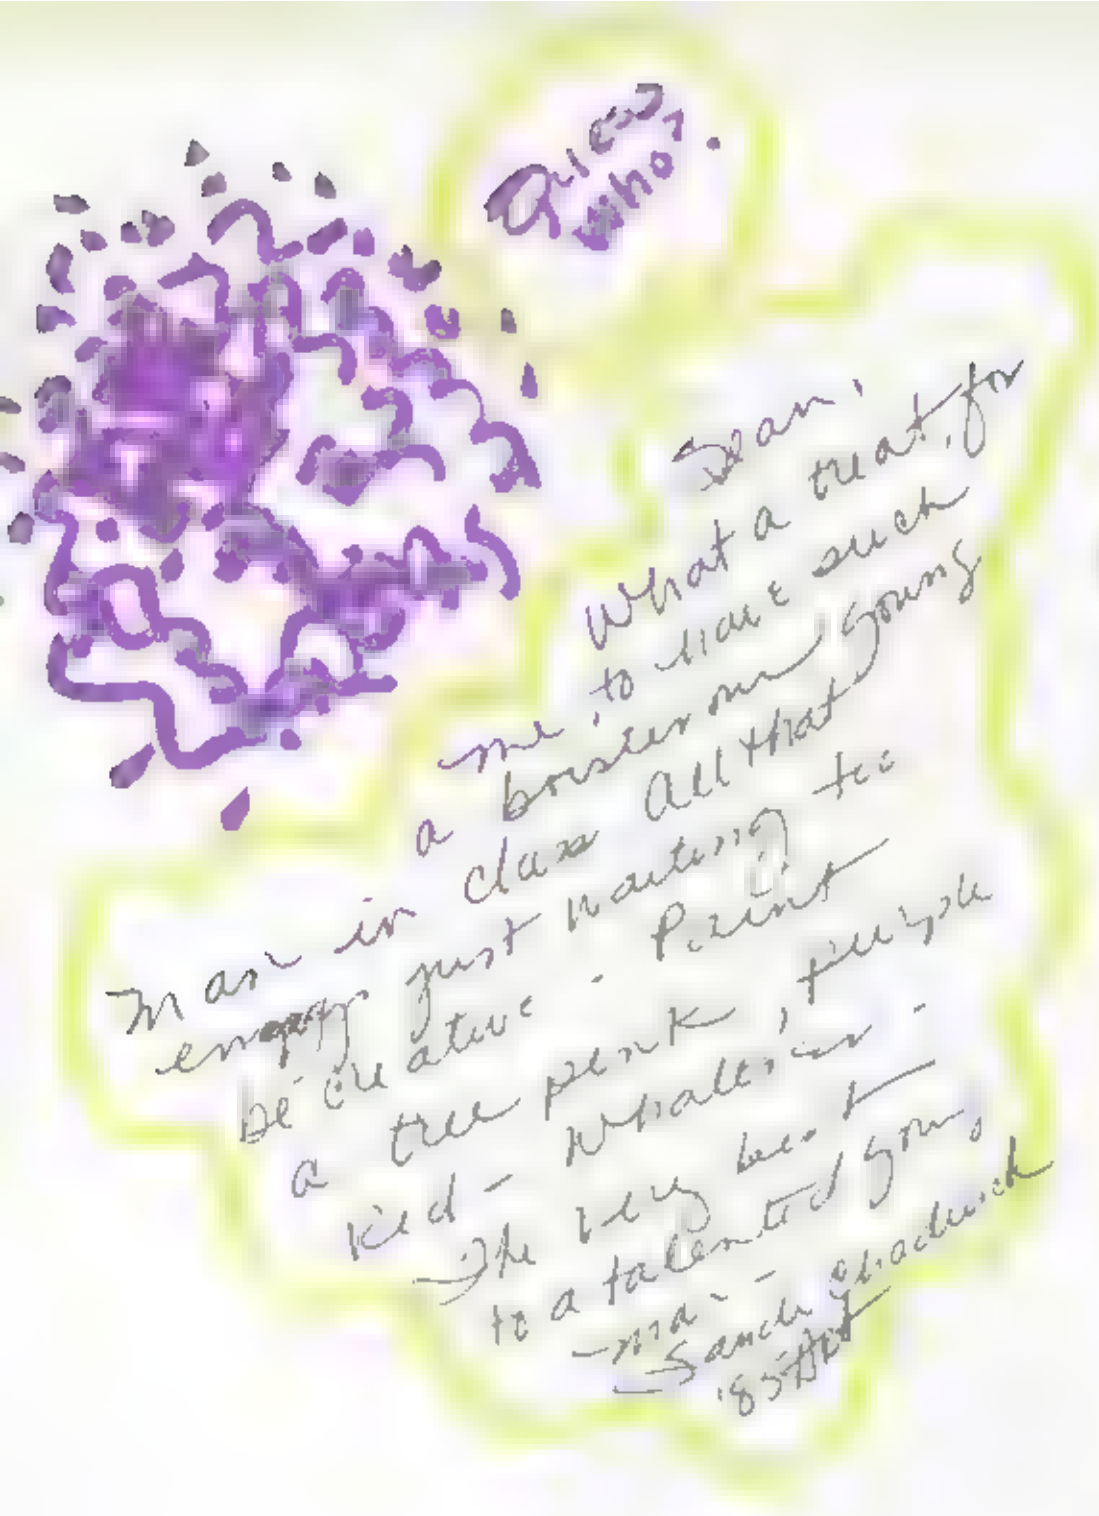 Guess
Who?
Sean,
What a treat, for
me, to have such
a boisterous young
man in class All that
energy just waiting to
be creative - Paint
a tree pink, purple
kid - Whatever -
The very best
to a talented young
man -
Sandi Chadwick
'85 Art